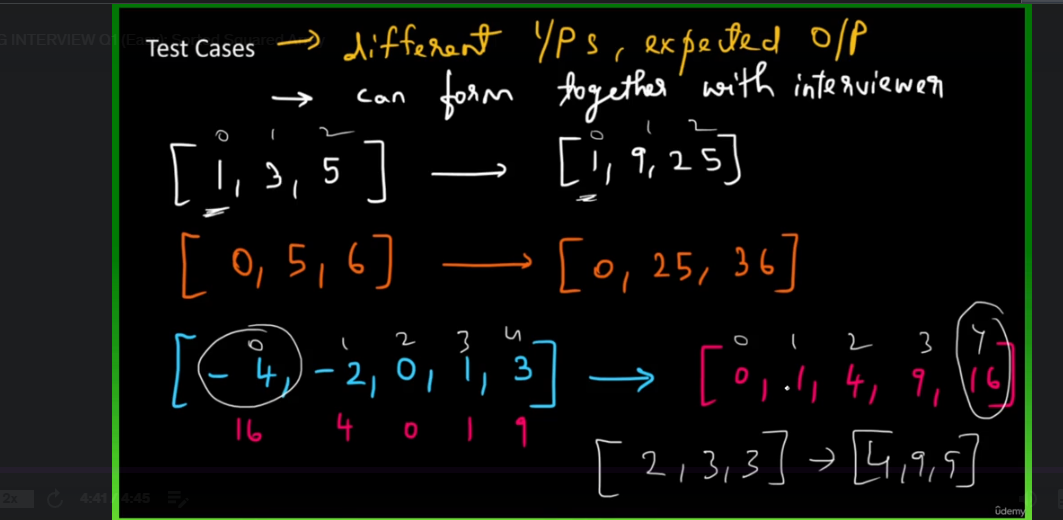 S INTERVIEW Q1 (Easy: Sorted Squared Array
Test Cases → different I/Ps, expected O/P
→ can form together with interviewer
0 1 2 0 1 2
[1, 3, 5] → [1, 9, 25]
[0, 5, 6] → [0, 25, 36]
0 1 2 3 4 0 1 2 3 4
[-4, -2, 0, 1, 3] → [0, 1, 4, 9, 16]
16 4 0 1 9
[2, 3, 3] → [4, 9, 9]
2x 4:41 / 4:45
ûdemy